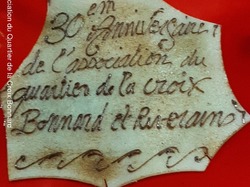 30 em Anniversaire
de l'association du
quartier de la croix
Bonnard et Riverains
ciation du Quartier de la Croix Bonnard